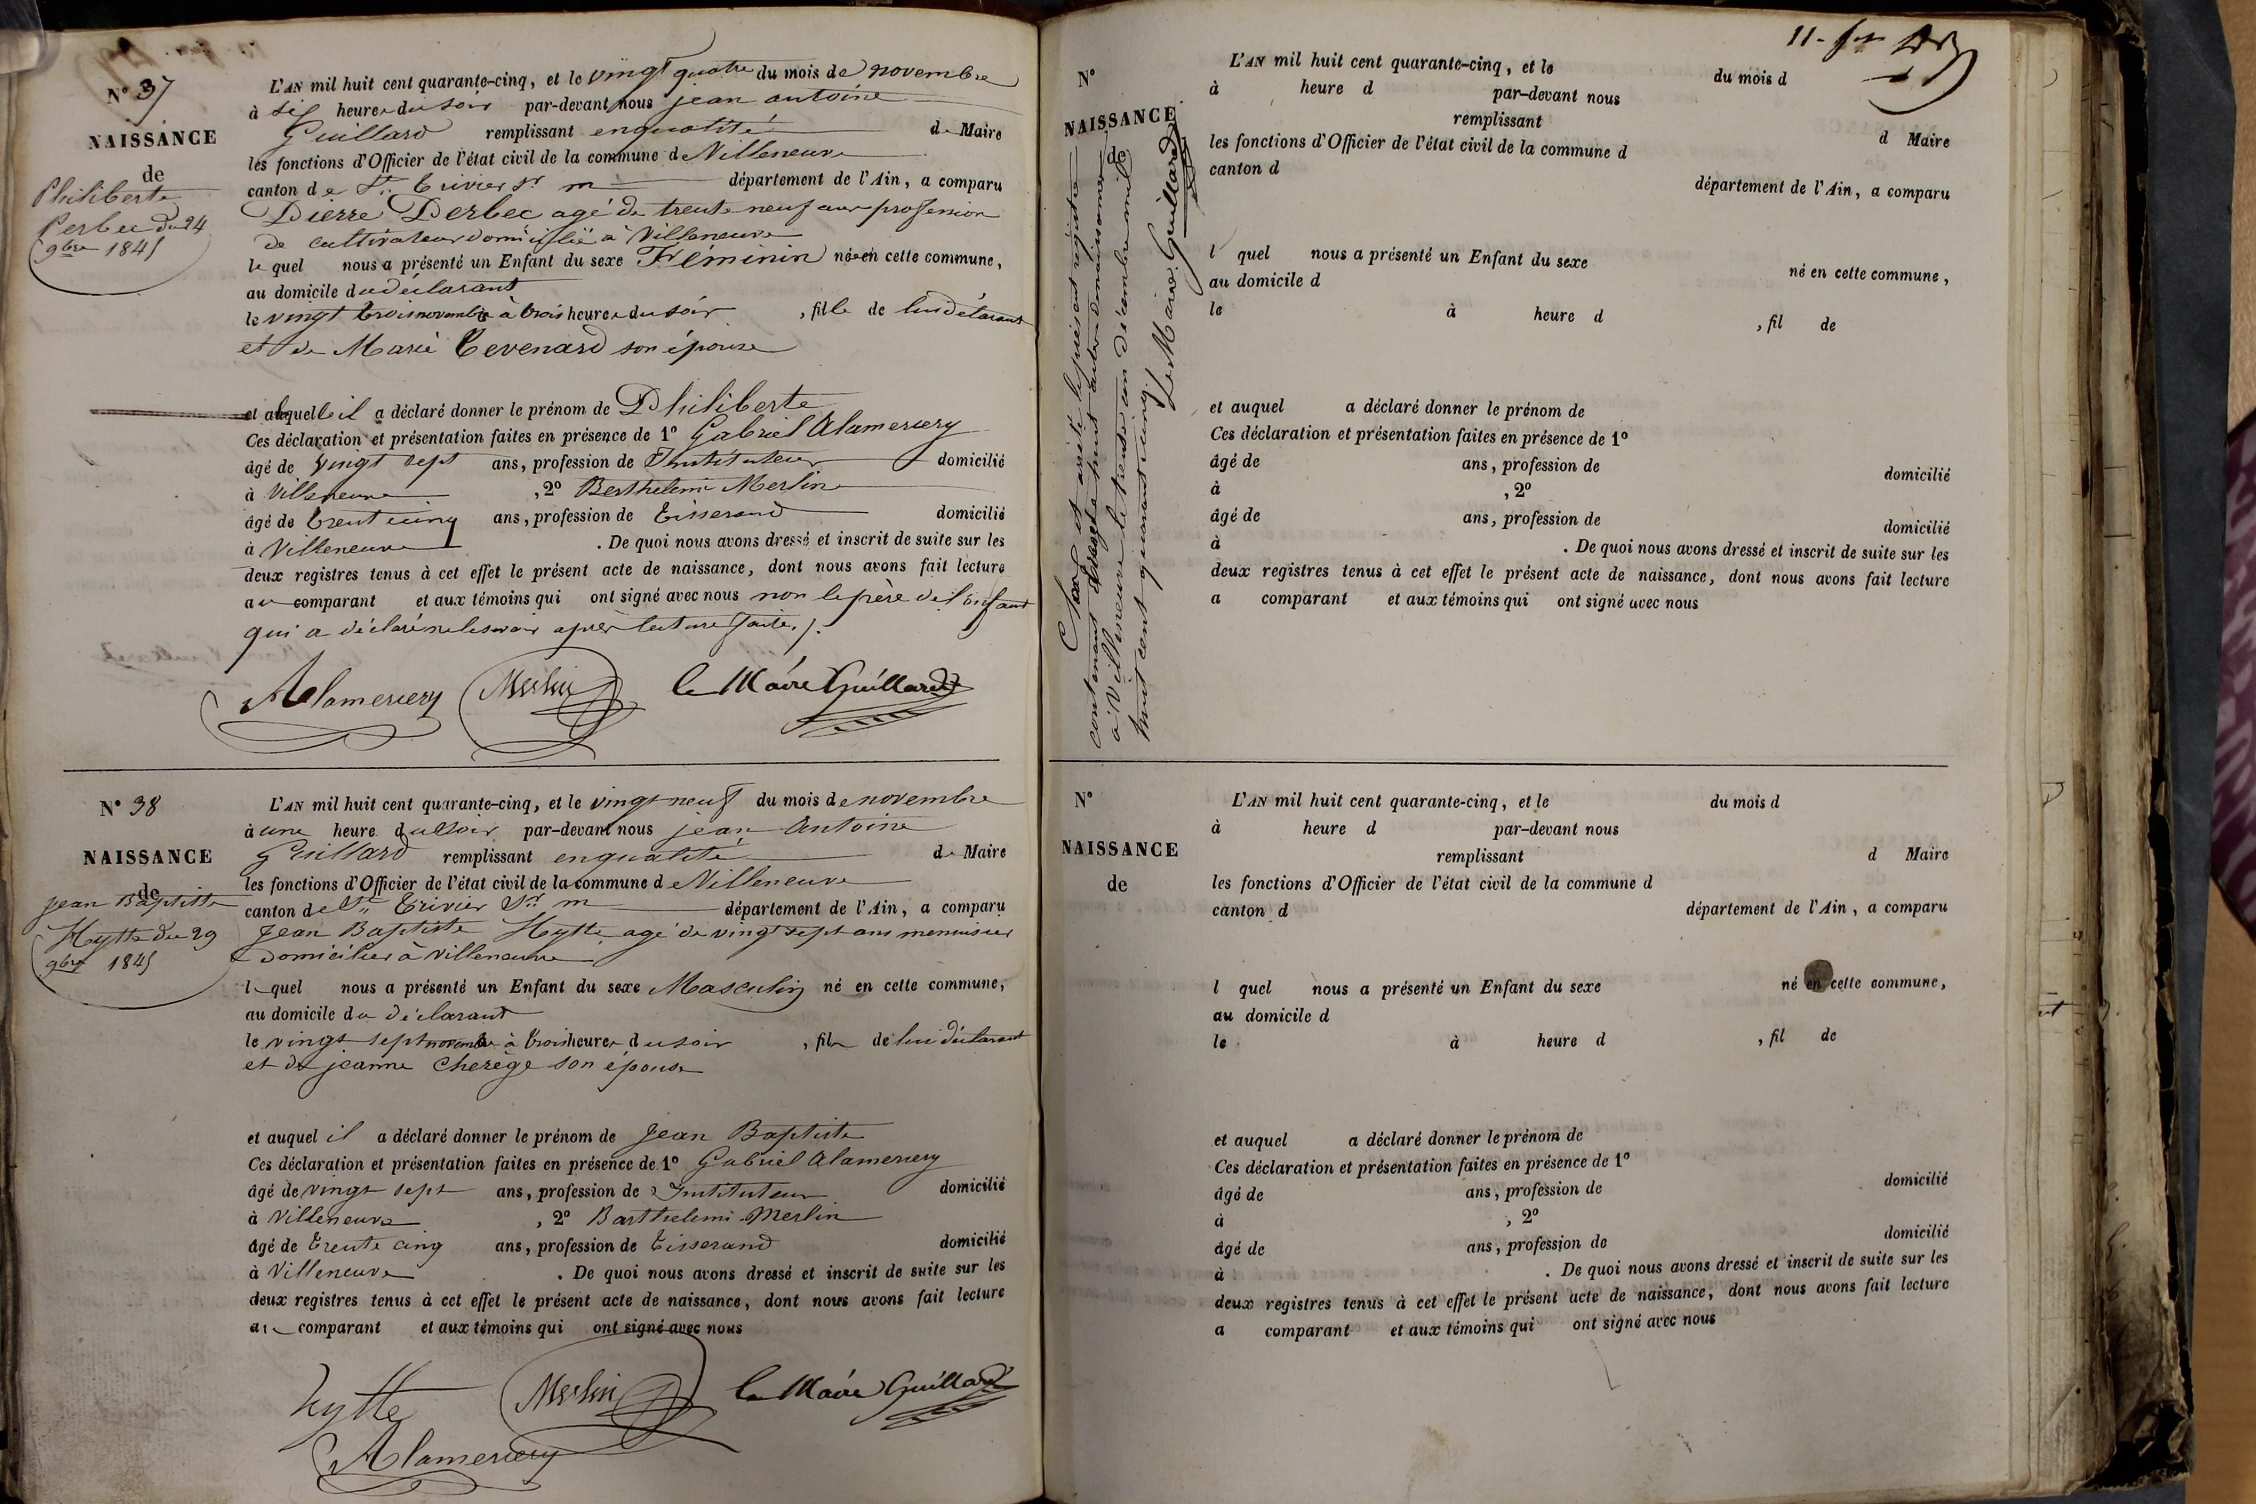 N° 37
NAISSANCE
de
Philiberte
Perbec du 24
9bre 1845
L'AN mil huit cent quarante-cinq, et le vingt quatre du mois de novembre
à six heures du soir par-devant nous jean antoine
Guillard remplissant en qualité de Maire
les fonctions d'Officier de l'état civil de la commune de Villeneuve
canton de St Trivier sr m département de l'Ain, a comparu
Pierre Perbec agé de trente neuf ans profession
de cultivateur domicilié à Villeneuve
le quel nous a présenté un Enfant du sexe Féminin née en cette commune,
au domicile du déclarant
le vingt trois novembre à trois heures du soir, fille de lui déclarant
et de Marie Tevenard son épouse
et a laquelle il a déclaré donner le prénom de Philiberte
Ces déclaration et présentation faites en présence de 1° Gabriel Alamercery
âgé de vingt sept ans, profession de Instituteur domicilié
à Villeneuve, 2° Berthelemi Merlin
âgé de trente cinq ans, profession de tisserand domicilié
à Villeneuve. De quoi nous avons dressé et inscrit de suite sur les
deux registres tenus à cet effet le présent acte de naissance, dont nous avons fait lecture
au comparant et aux témoins qui ont signé avec nous non le père de l'enfant
qui a déclaré ne le savoir après lecture faite./.
Alamercery Merlin le Maire Guillard
N° 38
NAISSANCE
de
jean Baptiste
Hytte du 29
9bre 1845
L'AN mil huit cent quarante-cinq, et le vingt neuf du mois de novembre
à une heure du soir par-devant nous jean Antoine
Guillard remplissant en qualité de Maire
les fonctions d'Officier de l'état civil de la commune de Villeneuve
canton de St Trivier sr m département de l'Ain, a comparu
Jean Baptiste Hytte agé de vingt sept ans menuisier
domicilier à Villeneuve
le quel nous a présenté un Enfant du sexe Masculin né en cette commune,
au domicile du déclarant
le vingt sept novembre à trois heures du soir, fils de lui déclarant
et de jeanne Cherège son épouse
et auquel il a déclaré donner le prénom de Jean Baptiste
Ces déclaration et présentation faites en présence de 1° Gabriel Alamercery
âgé de vingt sept ans, profession de Instituteur domicilié
à Villeneuve, 2° Barthelemi Merlin
âgé de trente cinq ans, profession de tisserand domicilié
à Villeneuve. De quoi nous avons dressé et inscrit de suite sur les
deux registres tenus à cet effet le présent acte de naissance, dont nous avons fait lecture
au comparant et aux témoins qui ont signé avec nous
hytte Merlin le Maire Guillard
Alamercery
11
N°
NAISSANCE
de
Clos et arrêté le présent registre
contenant trente huit actes de naissances
à Villeneuve le trente un décembre mil
huit cent quarante cinq.
Le Maire Guillard
L'AN mil huit cent quarante-cinq, et le du mois d
à heure d par-devant nous
remplissant d Maire
les fonctions d'Officier de l'état civil de la commune d
canton d département de l'Ain, a comparu
l quel nous a présenté un Enfant du sexe né en cette commune,
au domicile d
le à heure d, fil de
et auquel a déclaré donner le prénom de
Ces déclaration et présentation faites en présence de 1°
âgé de ans, profession de domicilié
à, 2°
âgé de ans, profession de domicilié
à. De quoi nous avons dressé et inscrit de suite sur les
deux registres tenus à cet effet le présent acte de naissance, dont nous avons fait lecture
a comparant et aux témoins qui ont signé avec nous
N°
NAISSANCE
de
L'AN mil huit cent quarante-cinq, et le du mois d
à heure d par-devant nous
remplissant d Maire
les fonctions d'Officier de l'état civil de la commune d
canton d département de l'Ain, a comparu
l quel nous a présenté un Enfant du sexe né en cette commune,
au domicile d
le à heure d, fil de
et auquel a déclaré donner le prénom de
Ces déclaration et présentation faites en présence de 1°
âgé de ans, profession de domicilié
à, 2°
âgé de ans, profession de domicilié
à. De quoi nous avons dressé et inscrit de suite sur les
deux registres tenus à cet effet le présent acte de naissance, dont nous avons fait lecture
a comparant et aux témoins qui ont signé avec nous